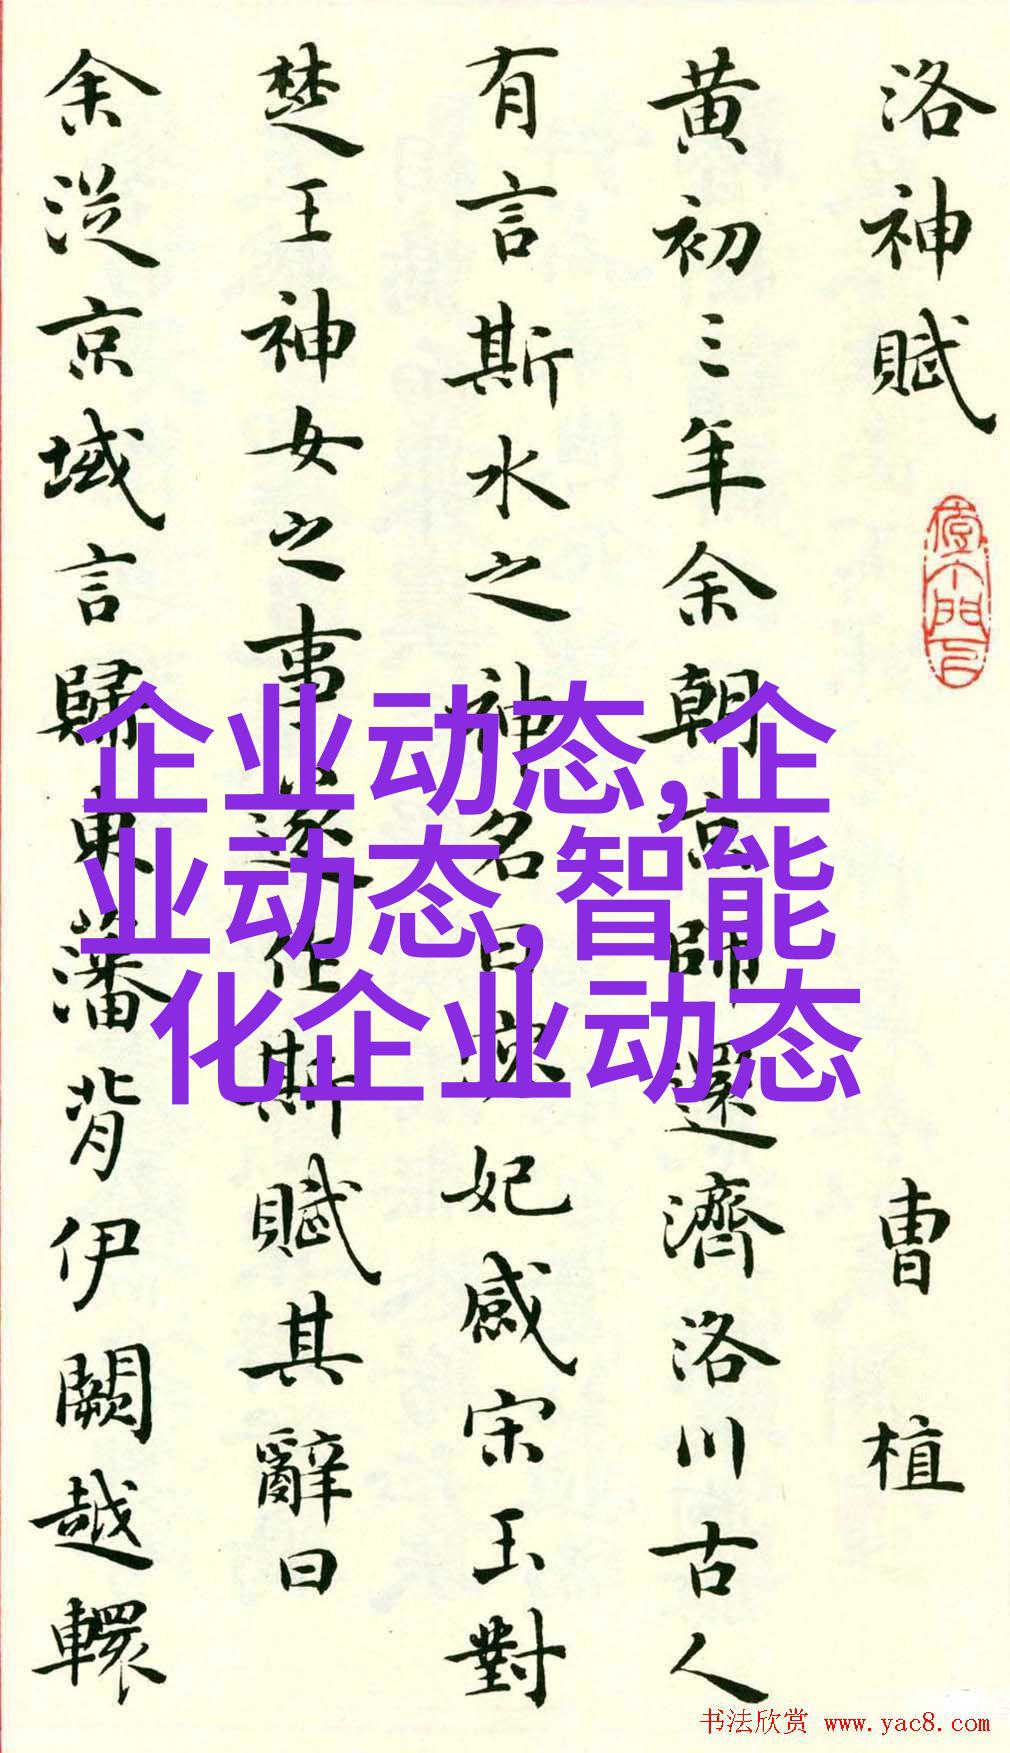 洛神賦
曹植
黃初三年余朝京師還濟洛川古人
有言斯水之神名曰宓妃感宋玉對
楚王神女之事遂作斯賦其辭曰
余從京域言歸東藩背伊闕越轘
企业动态,企
业动态,智能
化企业动态
书法欣赏 www.yac8.com